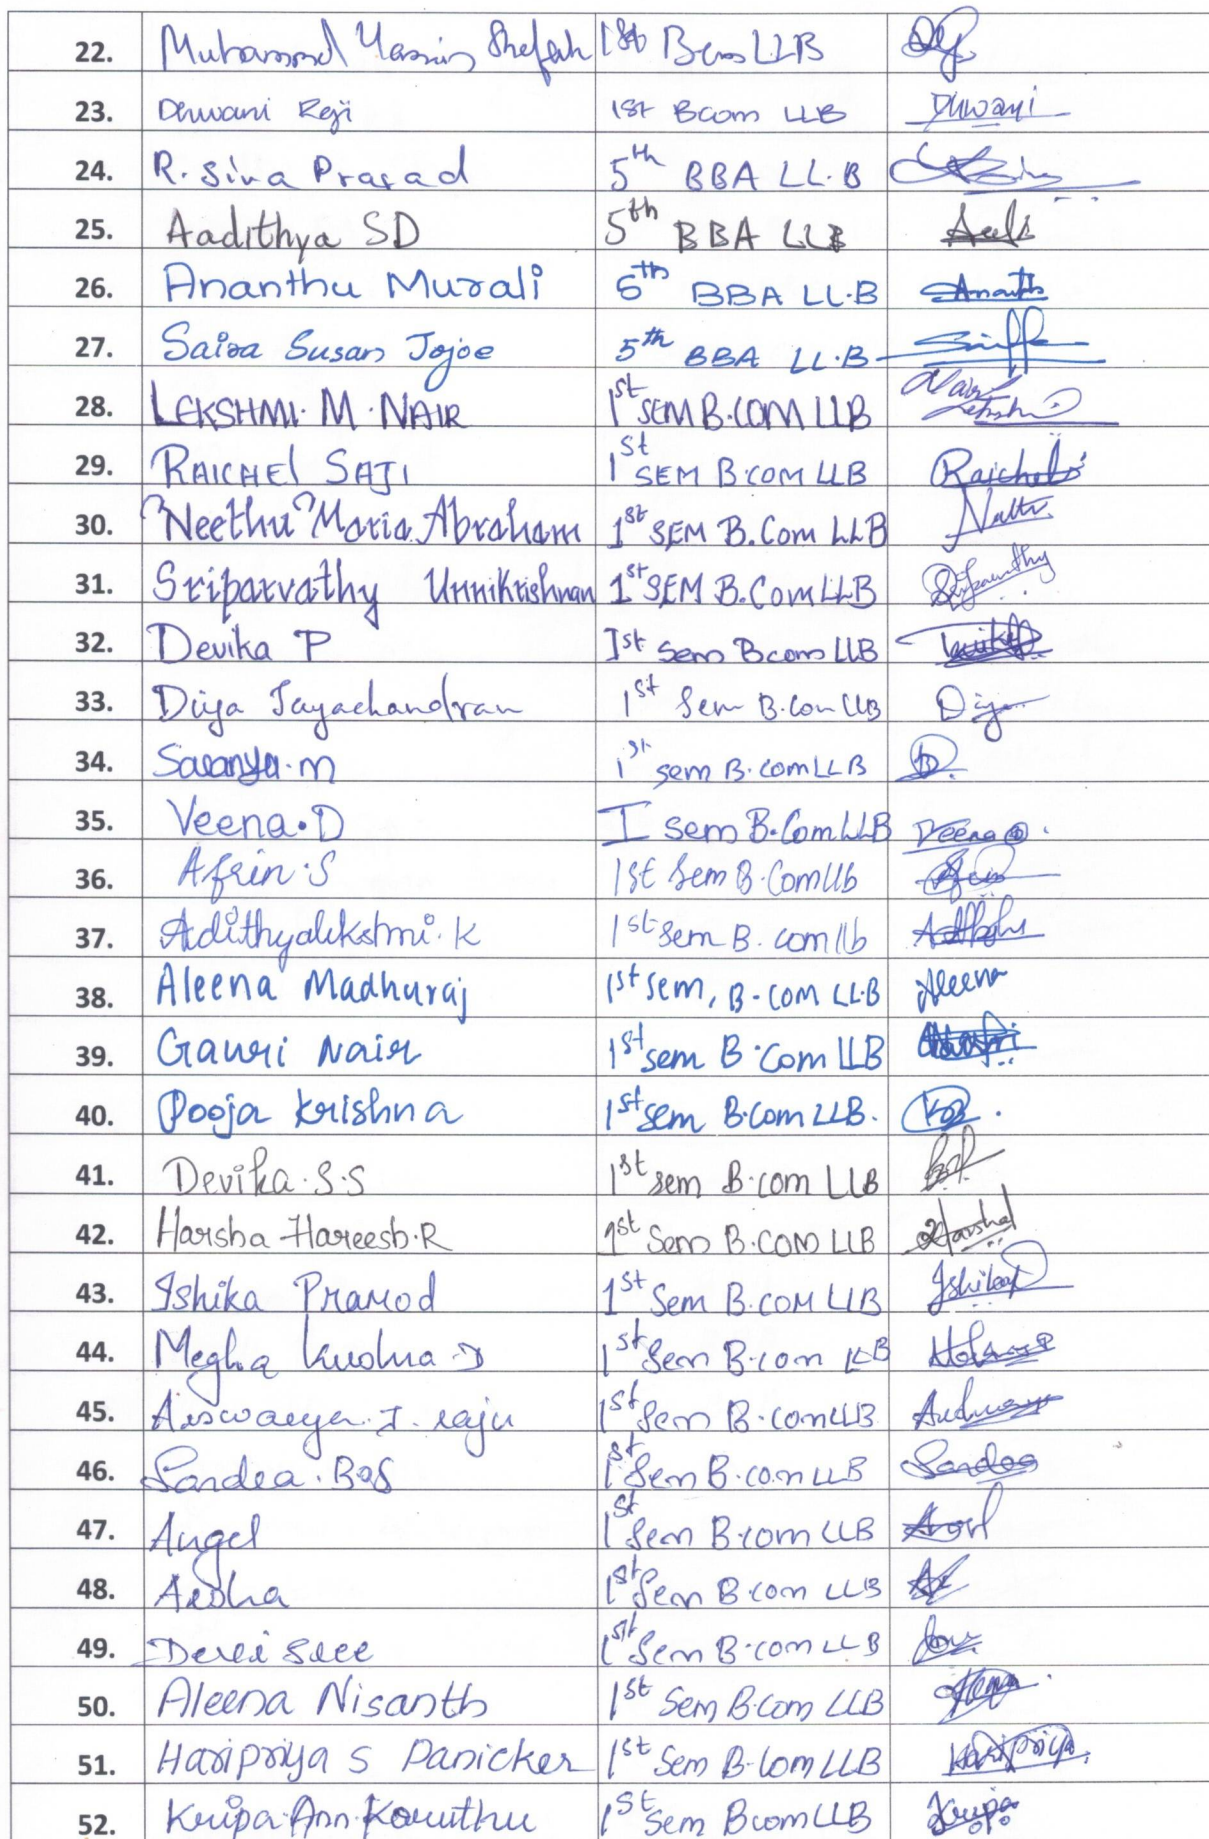 22. Muhammed Yasin Shefah 1st Bcom LLB
23. Dhwani Reji 1st Bcom LLB Dhwani
24. R. Siva Prasad 5th BBA LL.B
25. Aadithya SD 5th BBA LLB
26. Ananthu Murali 5th BBA LL.B Ananth
27. Saira Susan Jojoe 5th BBA LL.B
28. LEKSHMI. M. NAIR 1st SEM B.COM LLB
29. RAICHEL SAJI 1st SEM B.COM LLB Raichel
30. Neethu Maria Abraham 1st SEM B.Com LLB
31. Sriparvathy Unnikrishnan 1st SEM B.Com LLB Sriparvathy
32. Devika P Ist Sem Bcom LLB
33. Diya Jayachandran 1st Sem B.Com LLB Diya
34. Saranya.m 1st sem B.com LLB
35. Veena.D I sem B.Com LLB Veena
36. Afrin.S 1st Sem B.Com llb
37. Adithyalekshmi.K 1st sem B.com llb
38. Aleena Madhuraj 1st sem, B.com LL.B Aleena
39. Gauri Nair 1st sem B.Com LLB
40. Pooja Krishna 1st sem B.com LLB.
41. Devika.S.S 1st sem B.com LLB
42. Harsha Hareesh.R 1st Sem B.COM LLB Harsha
43. Ishika Pramod 1st Sem B.COM LLB Ishika
44. Megha 1st Sem B.com LLB
45. Aiswarya.J.raju 1st Sem B.com LLB
46. Sandra.Bos 1st Sem B.com LLB Sandra
47. Angel 1st Sem B.com LLB
48. Arsha 1st Sem B.com LLB
49. Devi Sree 1st Sem B.com LLB
50. Aleena Nisanth 1st Sem B.com LLB
51. Haripriya S Panicker 1st Sem B.Com LLB Haripriya
52. Kripa Ann Koruthu 1st Sem Bcom LLB Kripa